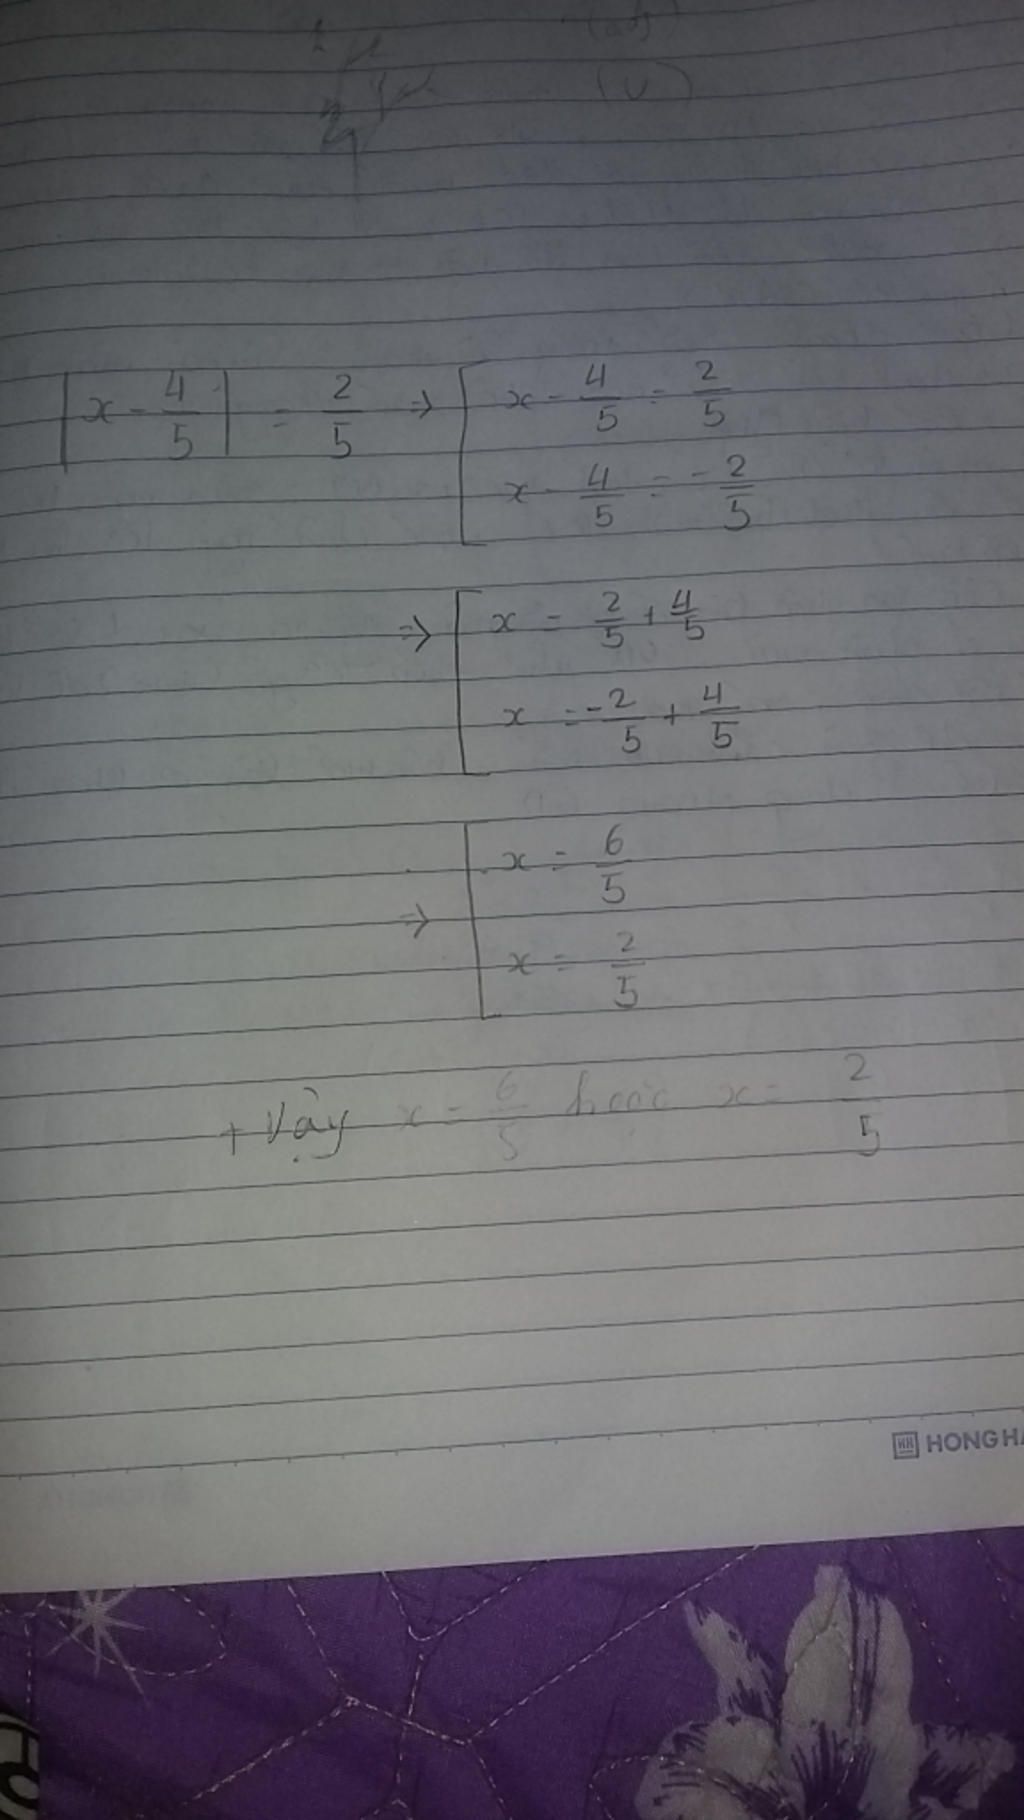 (adj)
(v)
|x - 4/5| = 2/5 => [ x - 4/5 = 2/5
x - 4/5 = -2/5
=> [ x = 2/5 + 4/5
x = -2/5 + 4/5
=> [ x = 6/5
x = 2/5
+ Vậy x = 6/5 hoặc x = 2/5
HH HONG HA